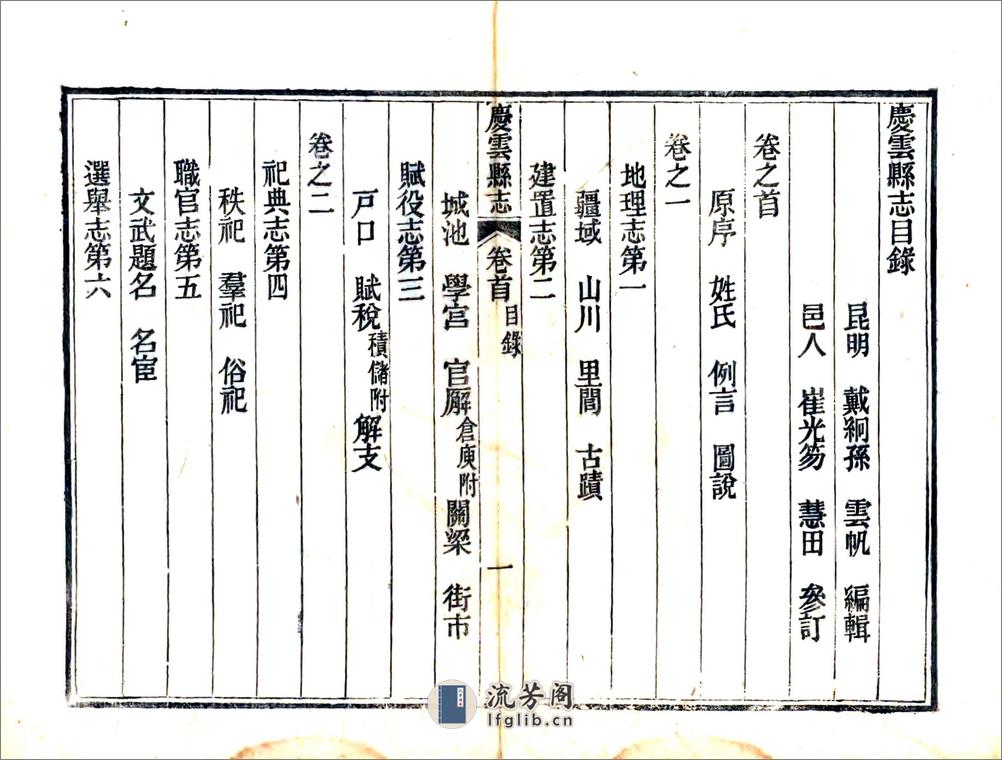 慶雲縣志目錄
昆明 戴絅孫 雲帆 編輯
邑人 崔光笏 慧田 參訂
卷之首
原序 姓氏 例言 圖說
卷之一
地理志第一
疆域 山川 里閭 古蹟
建置志第二
慶雲縣志 卷首 目錄 一
城池 學宮 官廨 倉庾附 關梁 街市
賦役志第三
戸口 賦稅 積儲附 解支
卷之二
祀典志第四
秩祀 羣祀 俗祀
職官志第五
文武題名 名宦
選舉志第六
流芳阁
lfglib.cn